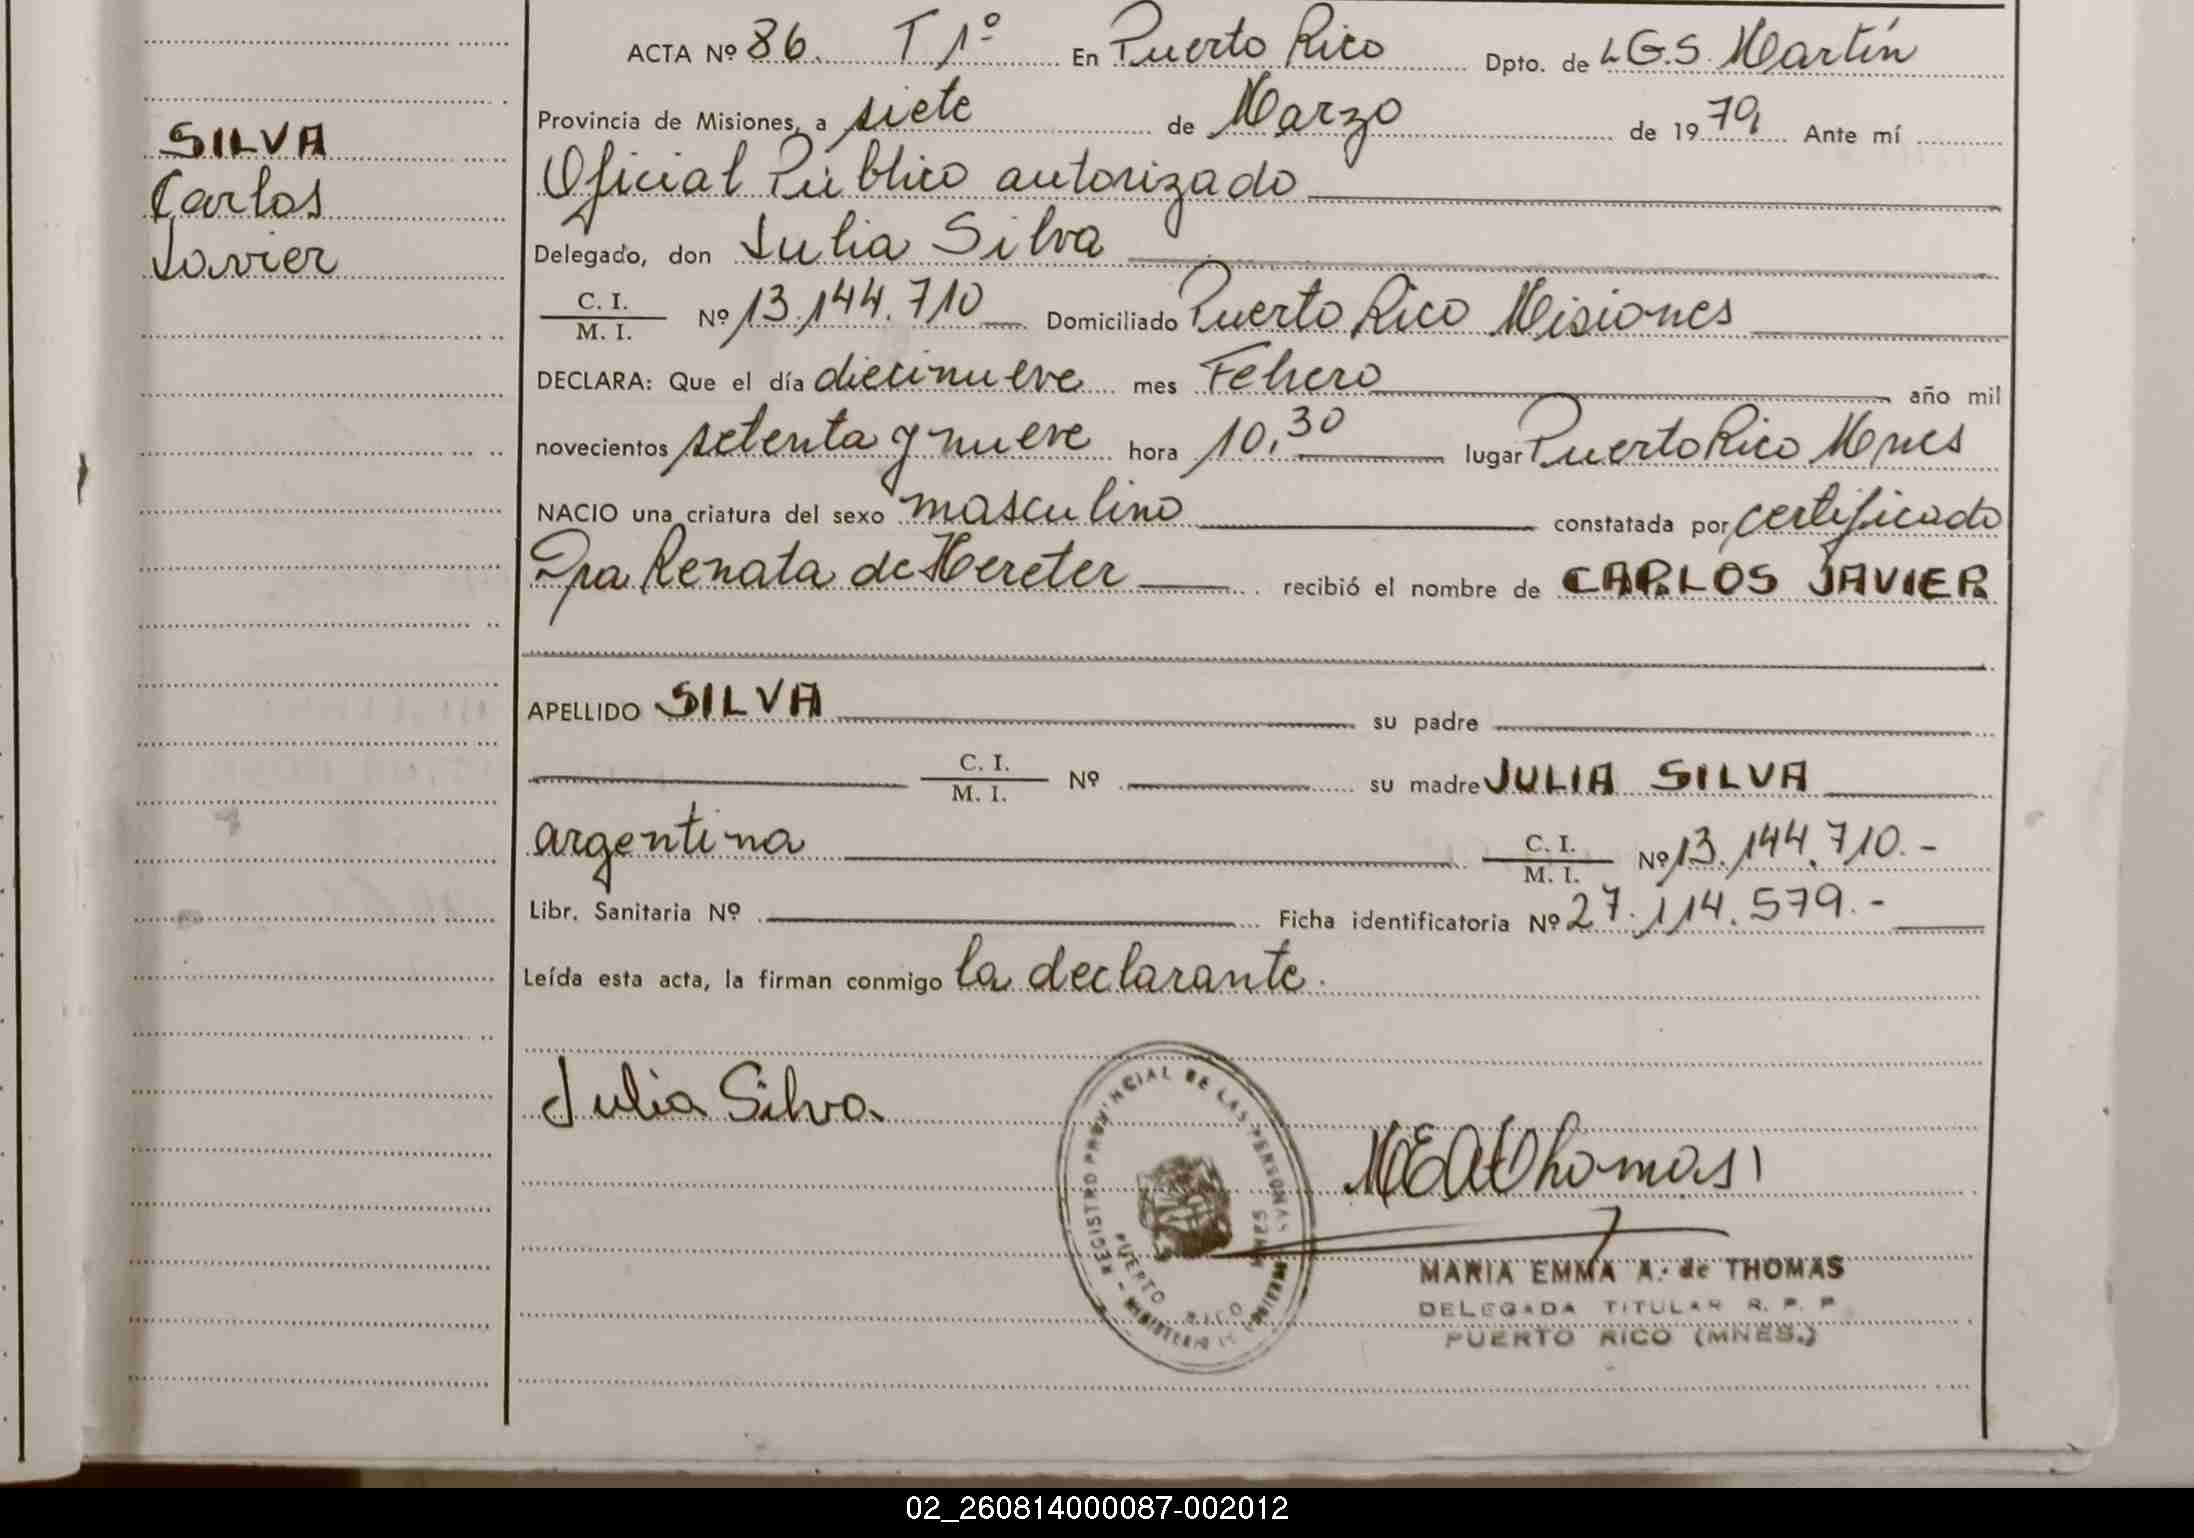 ACTA Nº 86. T 1º En Puerto Rico Dpto. de L G.S. Martín
Provincia de Misiones, a siete de Marzo de 1979 Ante mí
Oficial Público autorizado
Delegado, don Julia Silva
C. I. / M. I. Nº 13.144.710 Domiciliado Puerto Rico Misiones
DECLARA: Que el día diecinueve mes Febrero año mil
novecientos setenta y nueve hora 10,30 lugar Puerto Rico Mnes
NACIO una criatura del sexo masculino constatada por certificado
Dra Renata de Hereter recibió el nombre de CARLOS JAVIER
APELLIDO SILVA su padre
C. I. / M. I. Nº su madre JULIA SILVA
argentina C. I. / M. I. Nº 13.144.710.-
Libr. Sanitaria Nº Ficha identificatoria Nº 27.114.579.-
Leída esta acta, la firman conmigo la declarante.
SILVA
Carlos
Javier
Julia Silva
REGISTRO PROVINCIAL DE LAS PERSONAS
PUERTO RICO
MEAdThomas
MARIA EMMA A. de THOMAS
DELEGADA TITULAR R. P. P.
PUERTO RICO (MNES.)
02_260814000087-002012